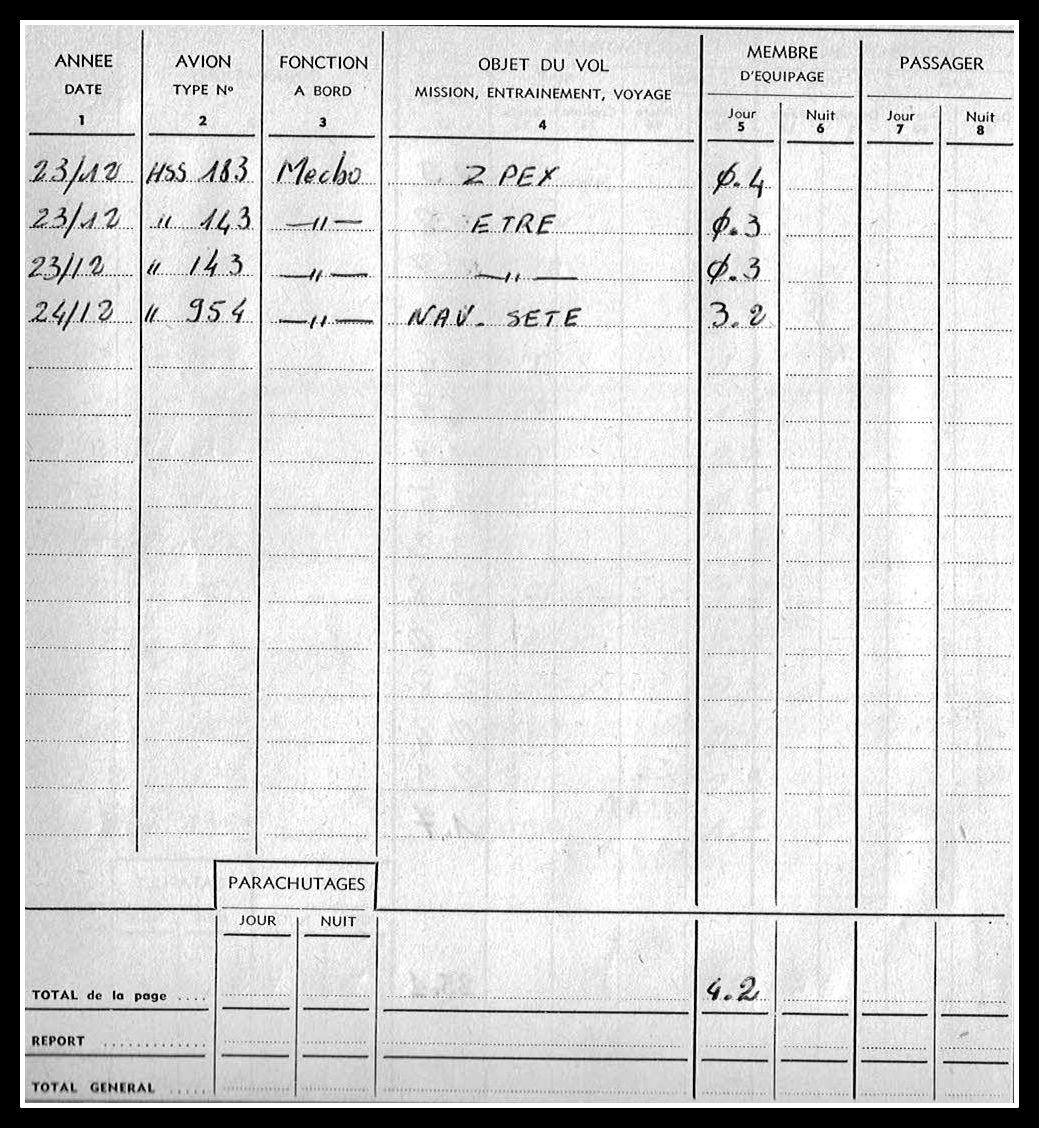 ANNEE AVION FONCTION OBJET DU VOL MEMBRE D'EQUIPAGE PASSAGER
DATE TYPE Nº A BORD MISSION, ENTRAINEMENT, VOYAGE Jour Nuit Jour Nuit
1 2 3 4 5 6 7 8
23/12 HSS 183 Mecbo 2 PEX Ø.4
23/12 " 143 —"— ETRE Ø.3
23/12 " 143 —"— —"— Ø.3
24/12 " 954 —"— NAV. SETE 3.2
PARACHUTAGES
JOUR NUIT
TOTAL de la page .... 4.2
REPORT .............
TOTAL GENERAL .....